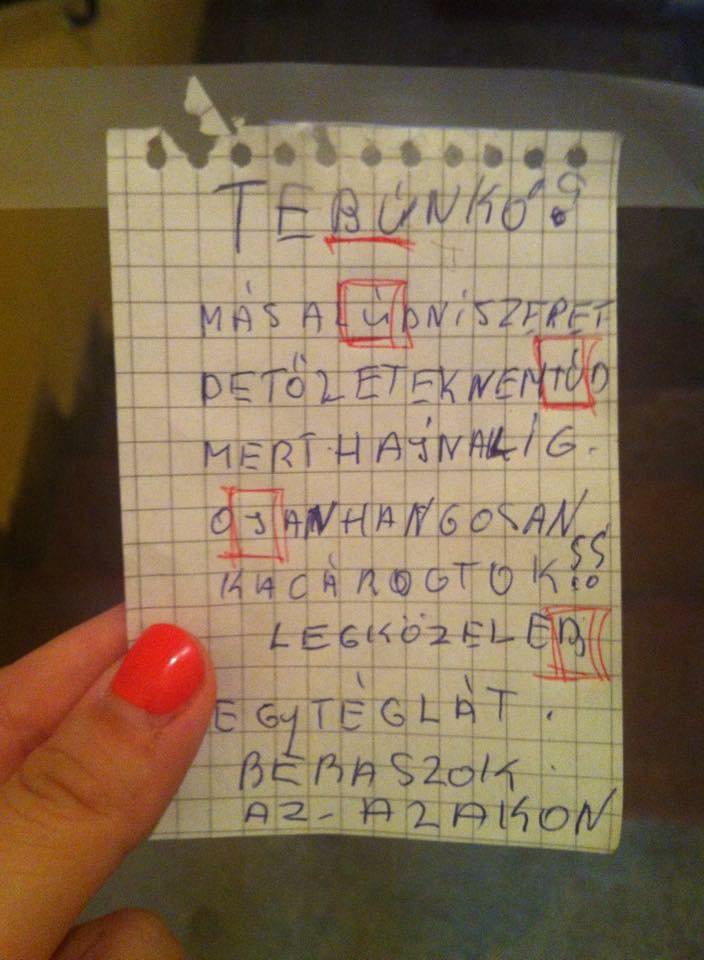 TEBÚNKŐ?
MÁSALÚDNISZERET
DETŐLETEKNEMTÚD
MERTHAJNALIG.
OJANHANGOSAN
KACÁROGTOK??
LEGKÖZELEB
EGYTÉGLÁT.
BEBASZOK.
AZ-AZAKON